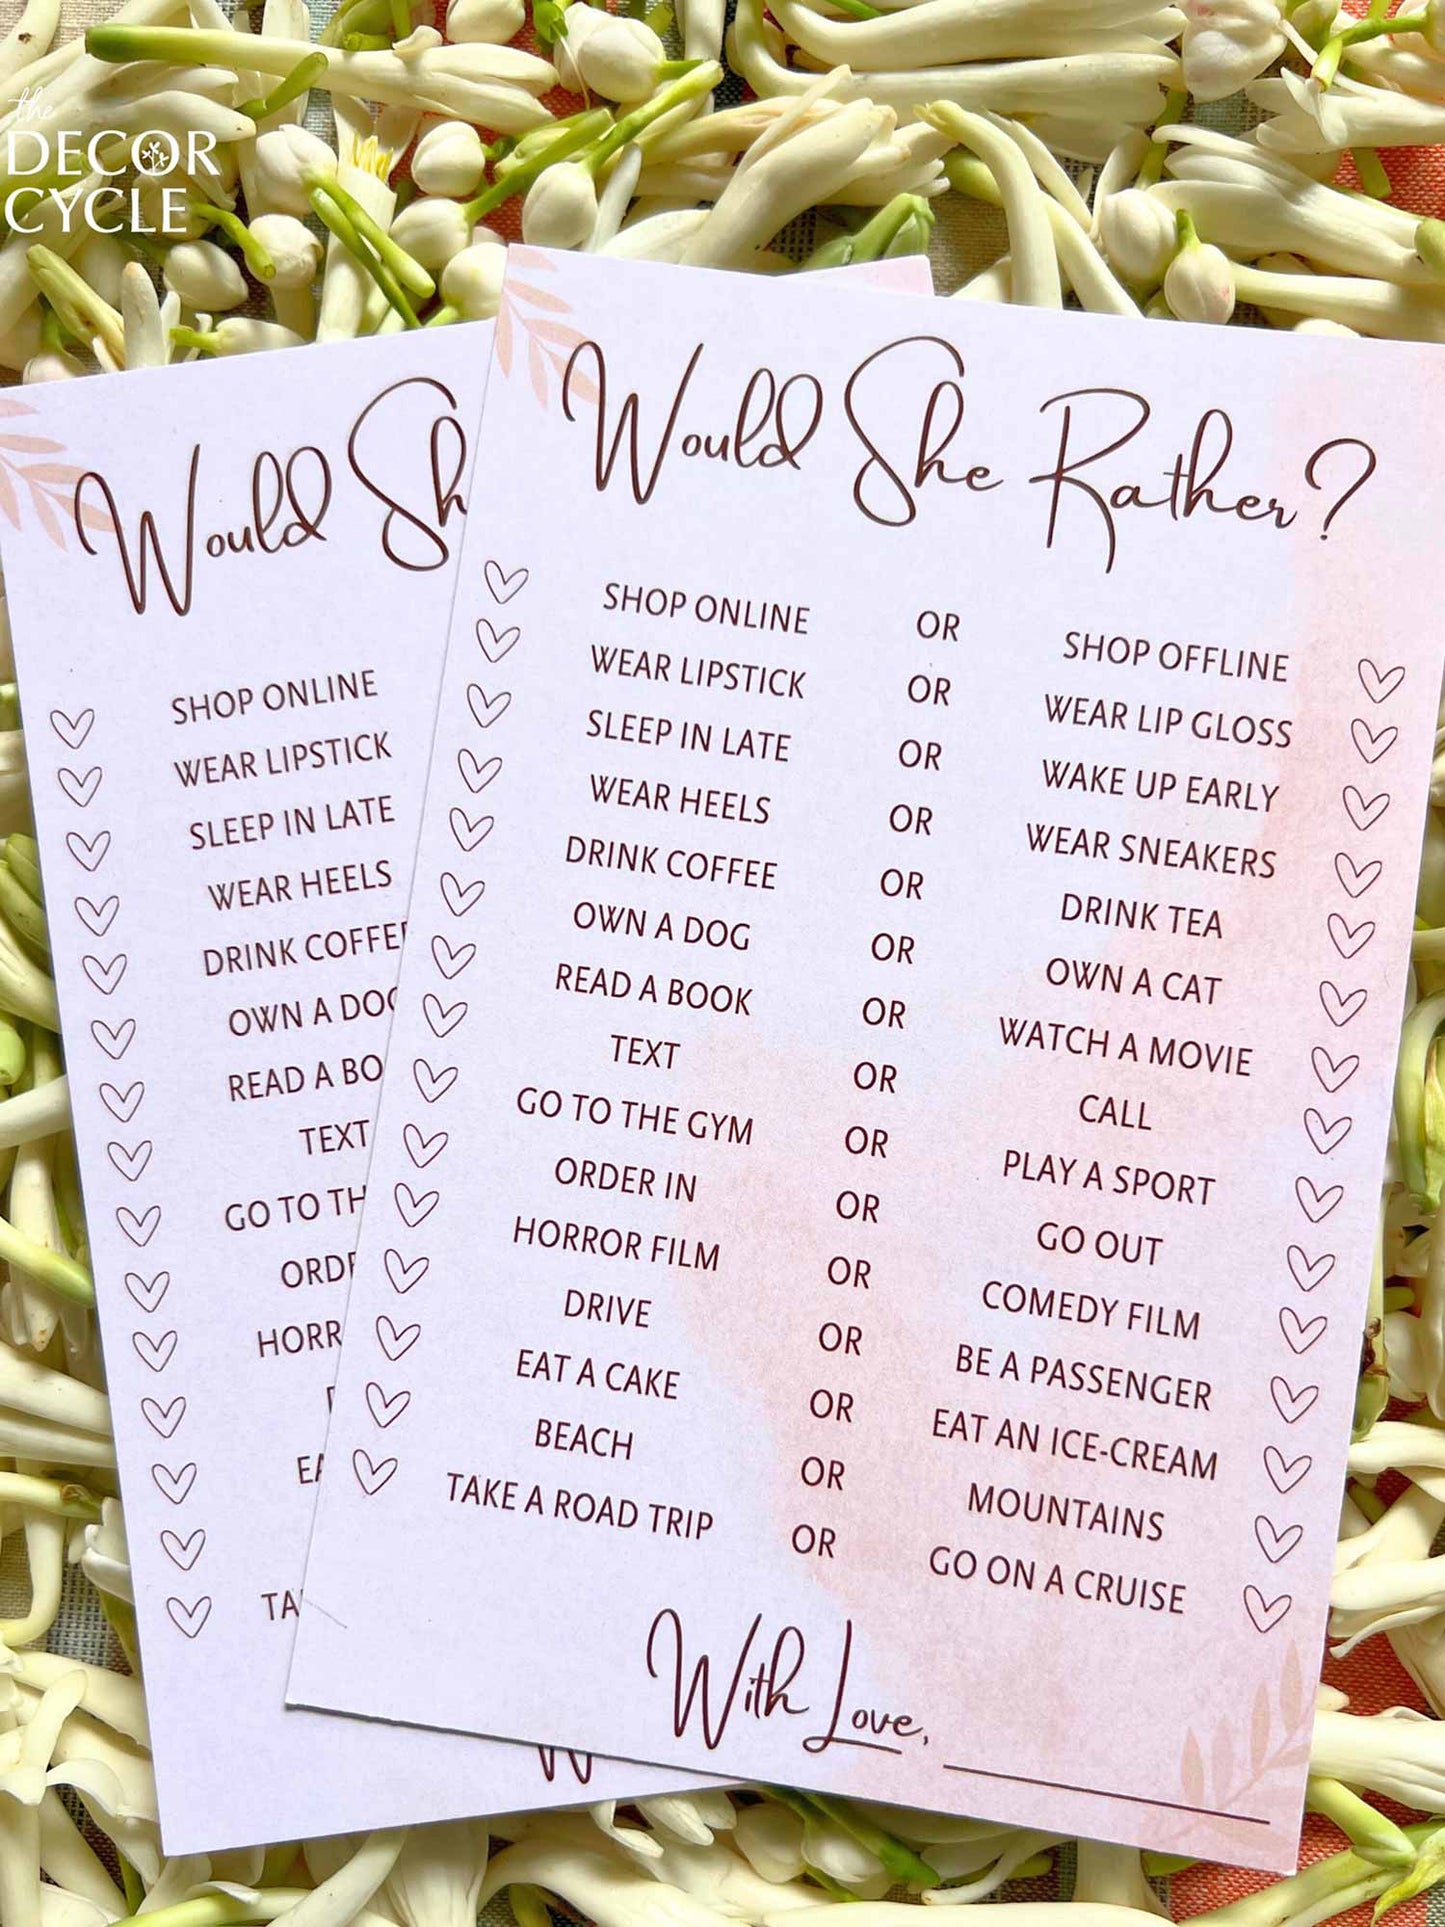 the
DECOR
CYCLE
Would She Rather?
SHOP ONLINE OR SHOP OFFLINE
WEAR LIPSTICK OR WEAR LIP GLOSS
SLEEP IN LATE OR WAKE UP EARLY
WEAR HEELS OR WEAR SNEAKERS
DRINK COFFEE OR DRINK TEA
OWN A DOG OR OWN A CAT
READ A BOOK OR WATCH A MOVIE
TEXT OR CALL
GO TO THE GYM OR PLAY A SPORT
ORDER IN OR GO OUT
HORROR FILM OR COMEDY FILM
DRIVE OR BE A PASSENGER
EAT A CAKE OR EAT AN ICE-CREAM
BEACH OR MOUNTAINS
TAKE A ROAD TRIP OR GO ON A CRUISE
With Love,
Would Sh
SHOP ONLINE
WEAR LIPSTICK
SLEEP IN LATE
WEAR HEELS
DRINK COFFE
OWN A DO
READ A BO
TEXT
GO TO TH
ORD
HORR
EA
TA